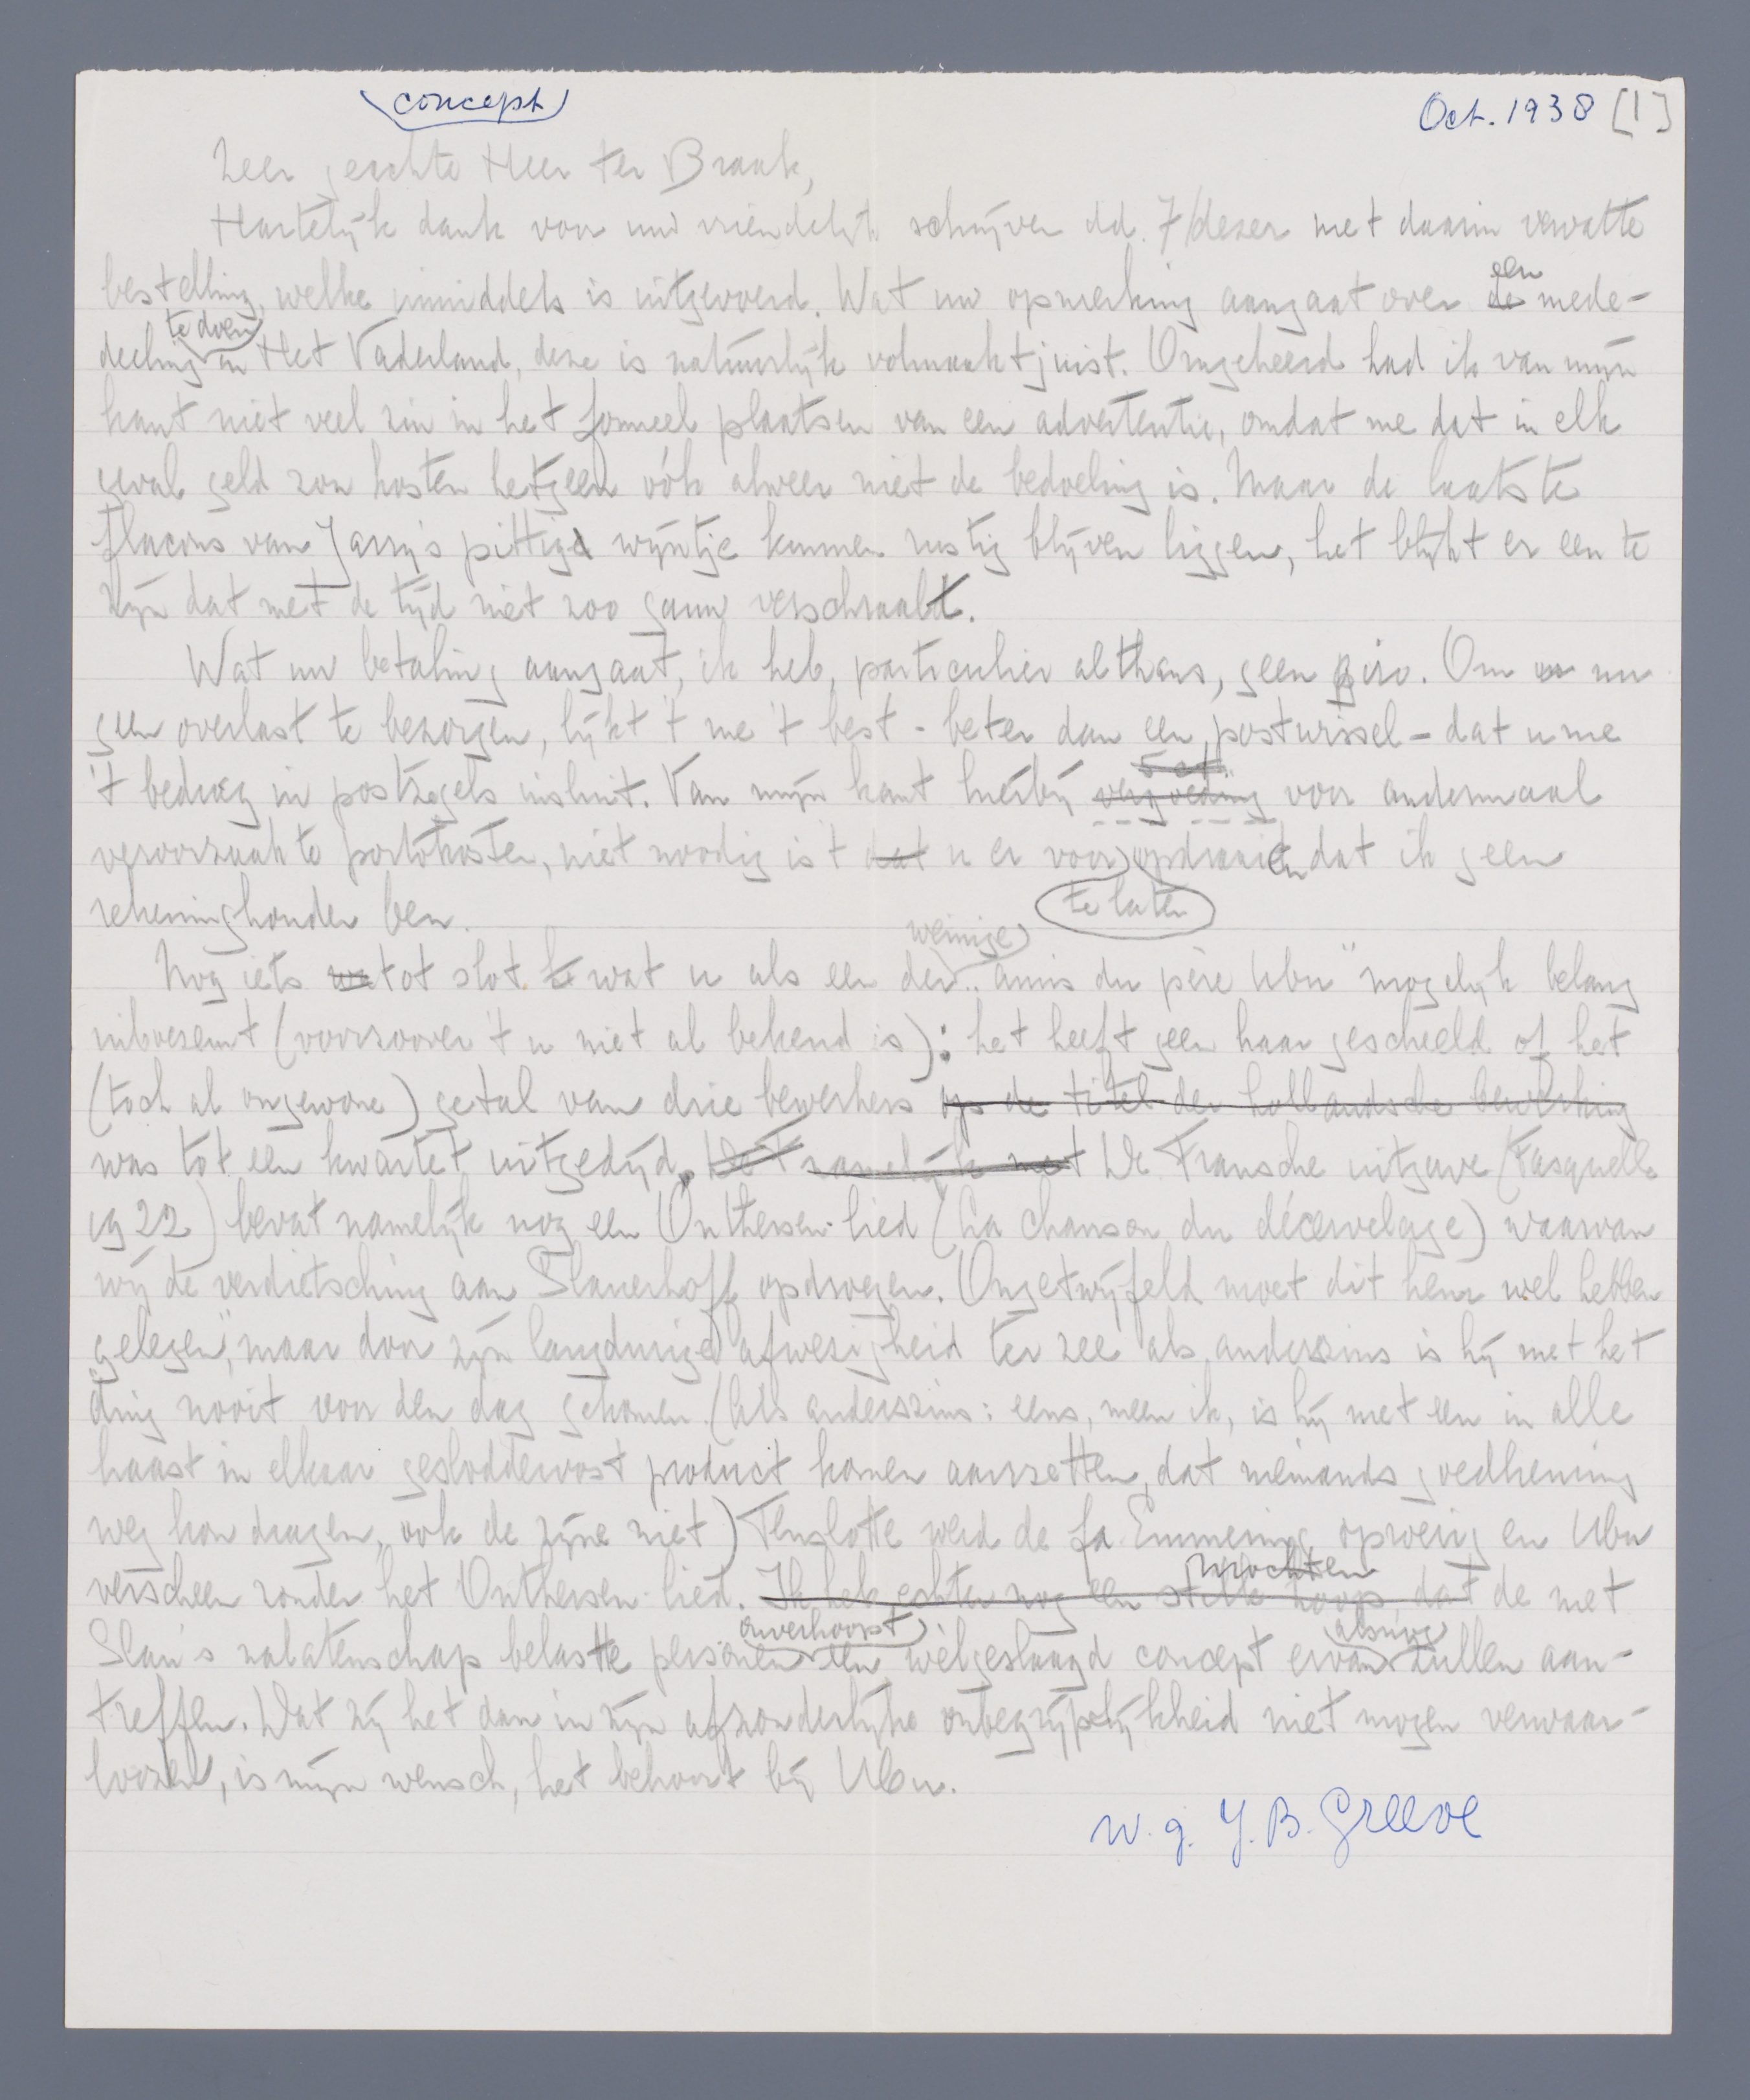 concept
Oct. 1938 [1]
Zeer geachte Heer ter Braak,
Hartelijk dank voor uw vriendelijk schrijven dd. 7/dezer met daarin vervatte
bestelling, welke inmiddels is uitgevoerd. Wat uw opmerking aangaat over de een mede-
deeling te doen in Het Vaderland, deze is natuurlijk volmaakt juist. Omgekeerd had ik van mijn
kant niet veel zin in het formeel plaatsen van een advertentie, omdat me dat in elk
geval geld zou kosten hetgeen óók alweer niet de bedoeling is. Maar de laatste
flacons van Jarry's pittige wijntje kunnen rustig blijven liggen, het blijkt er een te
zijn dat met de tijd niet zoo gauw verschraalt.
Wat uw betaling aangaat, ik heb, particulier althans, geen giro. Om uw
geen overlast te bezorgen, lijkt 't me 't best - beter dan een postwissel - dat u me
't bedrag in postzegels insluit. Van mijn kant hierbij vergoeding 5 ct. voor andermaal
veroorzaakte portokosten, niet noodig is 't dat u er voor op draaien te laten dat ik geen
rekeninghouder ben.
Nog iets tot slot wat u als een der weinige „amis du père Ubu" mogelijk belang
inboezemt (voorzoover 't u niet al bekend is): het heeft geen haar gescheeld of het
(toch al ongewone) getal van drie bewerkers op de titel der hollandsche bewerking
was tot een kwartet uitgedijd. Dat namelijk met De Fransche uitgave (Fasquelle
1922) bevat namelijk nog een Onthersen-lied (La chanson du décervelage) waarvan
wij de verdietsching aan Slauerhoff opdroegen. Ongetwijfeld moet dit hem wel hebben
„gelegen", maar door zijn langdurige afwezigheid ter zee als anderszins is hij met het
ding nooit voor den dag gekomen. (Als anderszins: eens, meen ik, is hij met een in alle
haast in elkaar gesloddervost product komen aanzetten, dat niemands goedkeuring
weg kon dragen, ook de zijne niet) Tenslotte werd de fa Emmering opwerig en Ubu
verscheen zonder het Onthersen-lied. Ik heb echter nog een stille hoop, dat mochten de met
Slau's nalatenschap belaste personen onverhoopt een wèlgeslaagd concept ervan alsnog zullen aan-
treffen. Dat zij het dan in zijn afzonderlijke onbegrijpelijkheid niet mogen verwaar-
loozen, is mijn wensch, het behoort bij Ubu.
w.g. J.B. Greeve